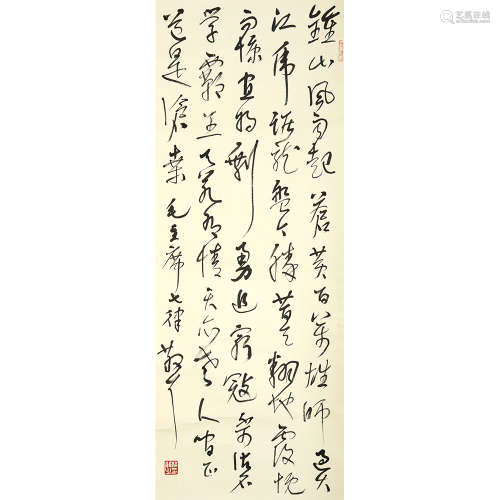 鍾山風雨起蒼黃百萬雄師過大
江虎踞龍盤今勝昔天翻地覆慨
而慷宜將剩勇追窮寇不可沽名
学霸王天若有情天亦老人間正
道是滄桑 毛主席七律